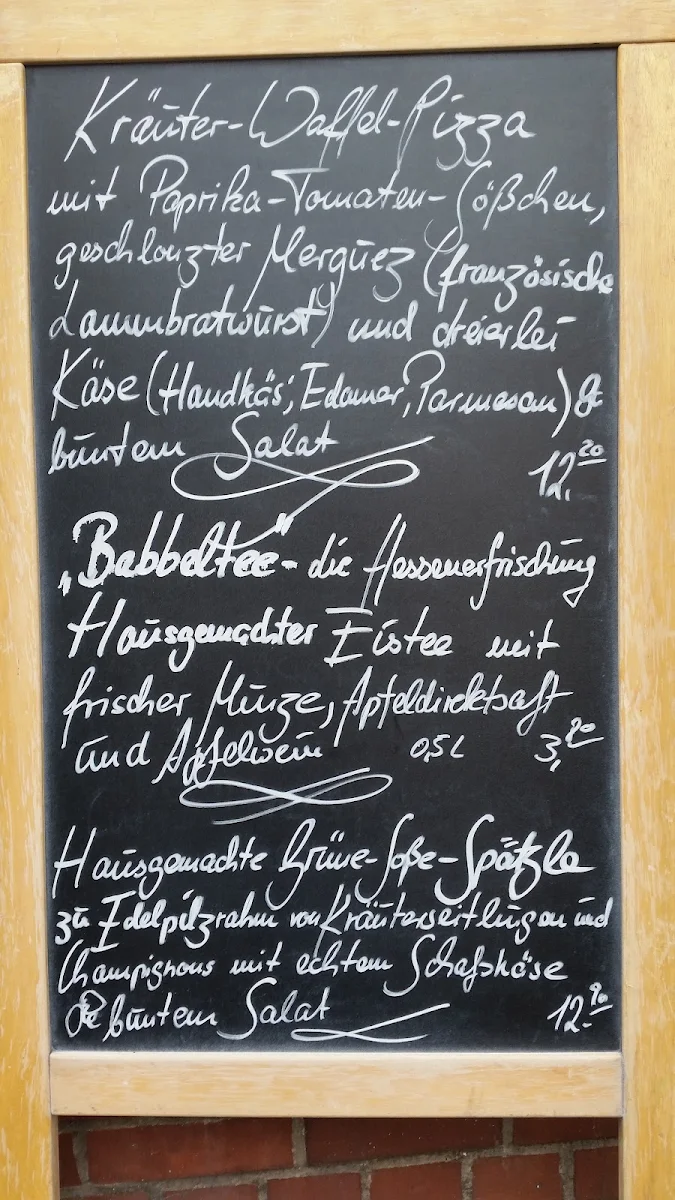 Kräuter-Waffel-Pizza
mit Paprika-Tomaten-Sößchen,
geschlonzter Merguez (französische
Lammbratwurst) und dreierlei
Käse (Handkäs', Edamer, Parmesan) &
buntem Salat 12,20
„Babbeltee"- die Hessenerfrischung
Hausgemachter Eistee mit
frischer Minze, Apfeldirektsaft
und Apfelwein 0,5L 3,90
Hausgemachte Grüne-Soße-Spätzle
zu Edelpilzrahm von Kräuterseitlingen und
Champignons mit echtem Schafskäse
& buntem Salat 12.90